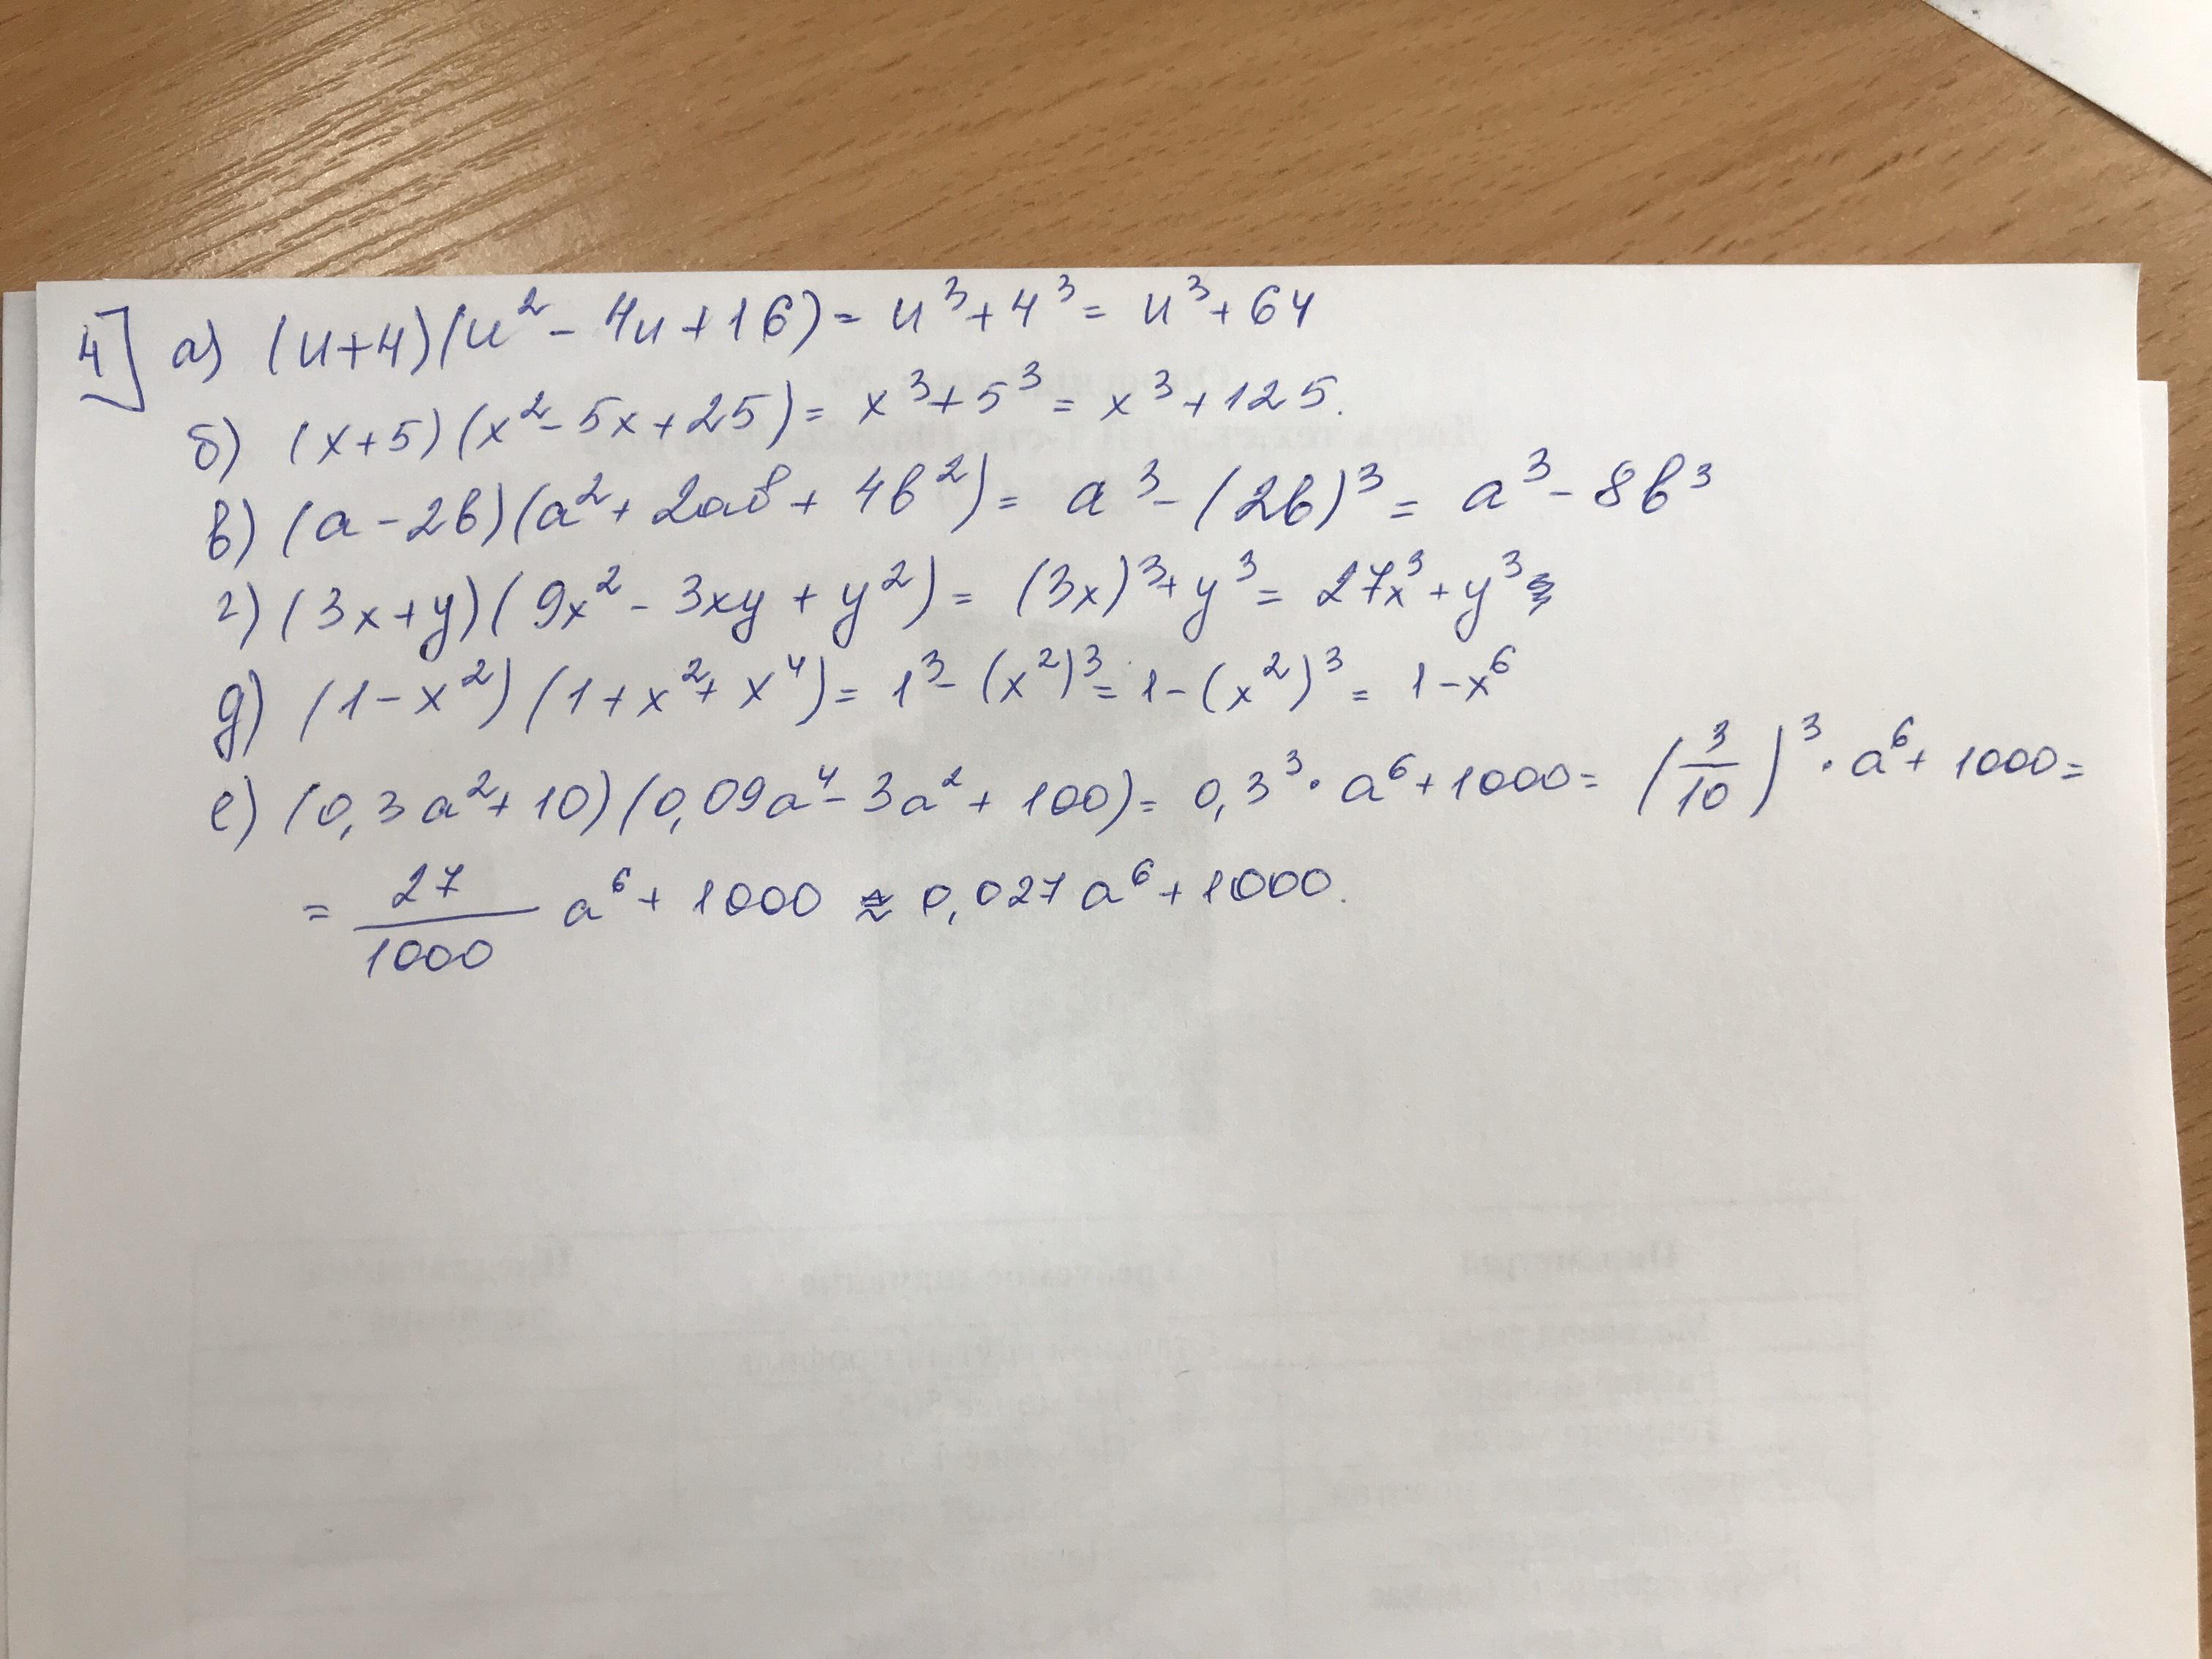 4] а) (u+4)(u² - 4u + 16) = u³ + 4³ = u³ + 64
б) (x+5)(x² - 5x + 25) = x³ + 5³ = x³ + 125.
в) (a - 2b)(a² + 2ab + 4b²) = a³ - (2b)³ = a³ - 8b³
г) (3x + y)(9x² - 3xy + y²) = (3x)³ + y³ = 27x³ + y³
д) (1 - x²)(1 + x² + x⁴) = 1³ - (x²)³ = 1 - (x²)³ = 1 - x⁶
е) (0,3a² + 10)(0,09a⁴ - 3a² + 100) = 0,3³ · a⁶ + 1000 = (3/10)³ · a⁶ + 1000 =
= 27/1000 a⁶ + 1000 ≈ 0,027a⁶ + 1000.